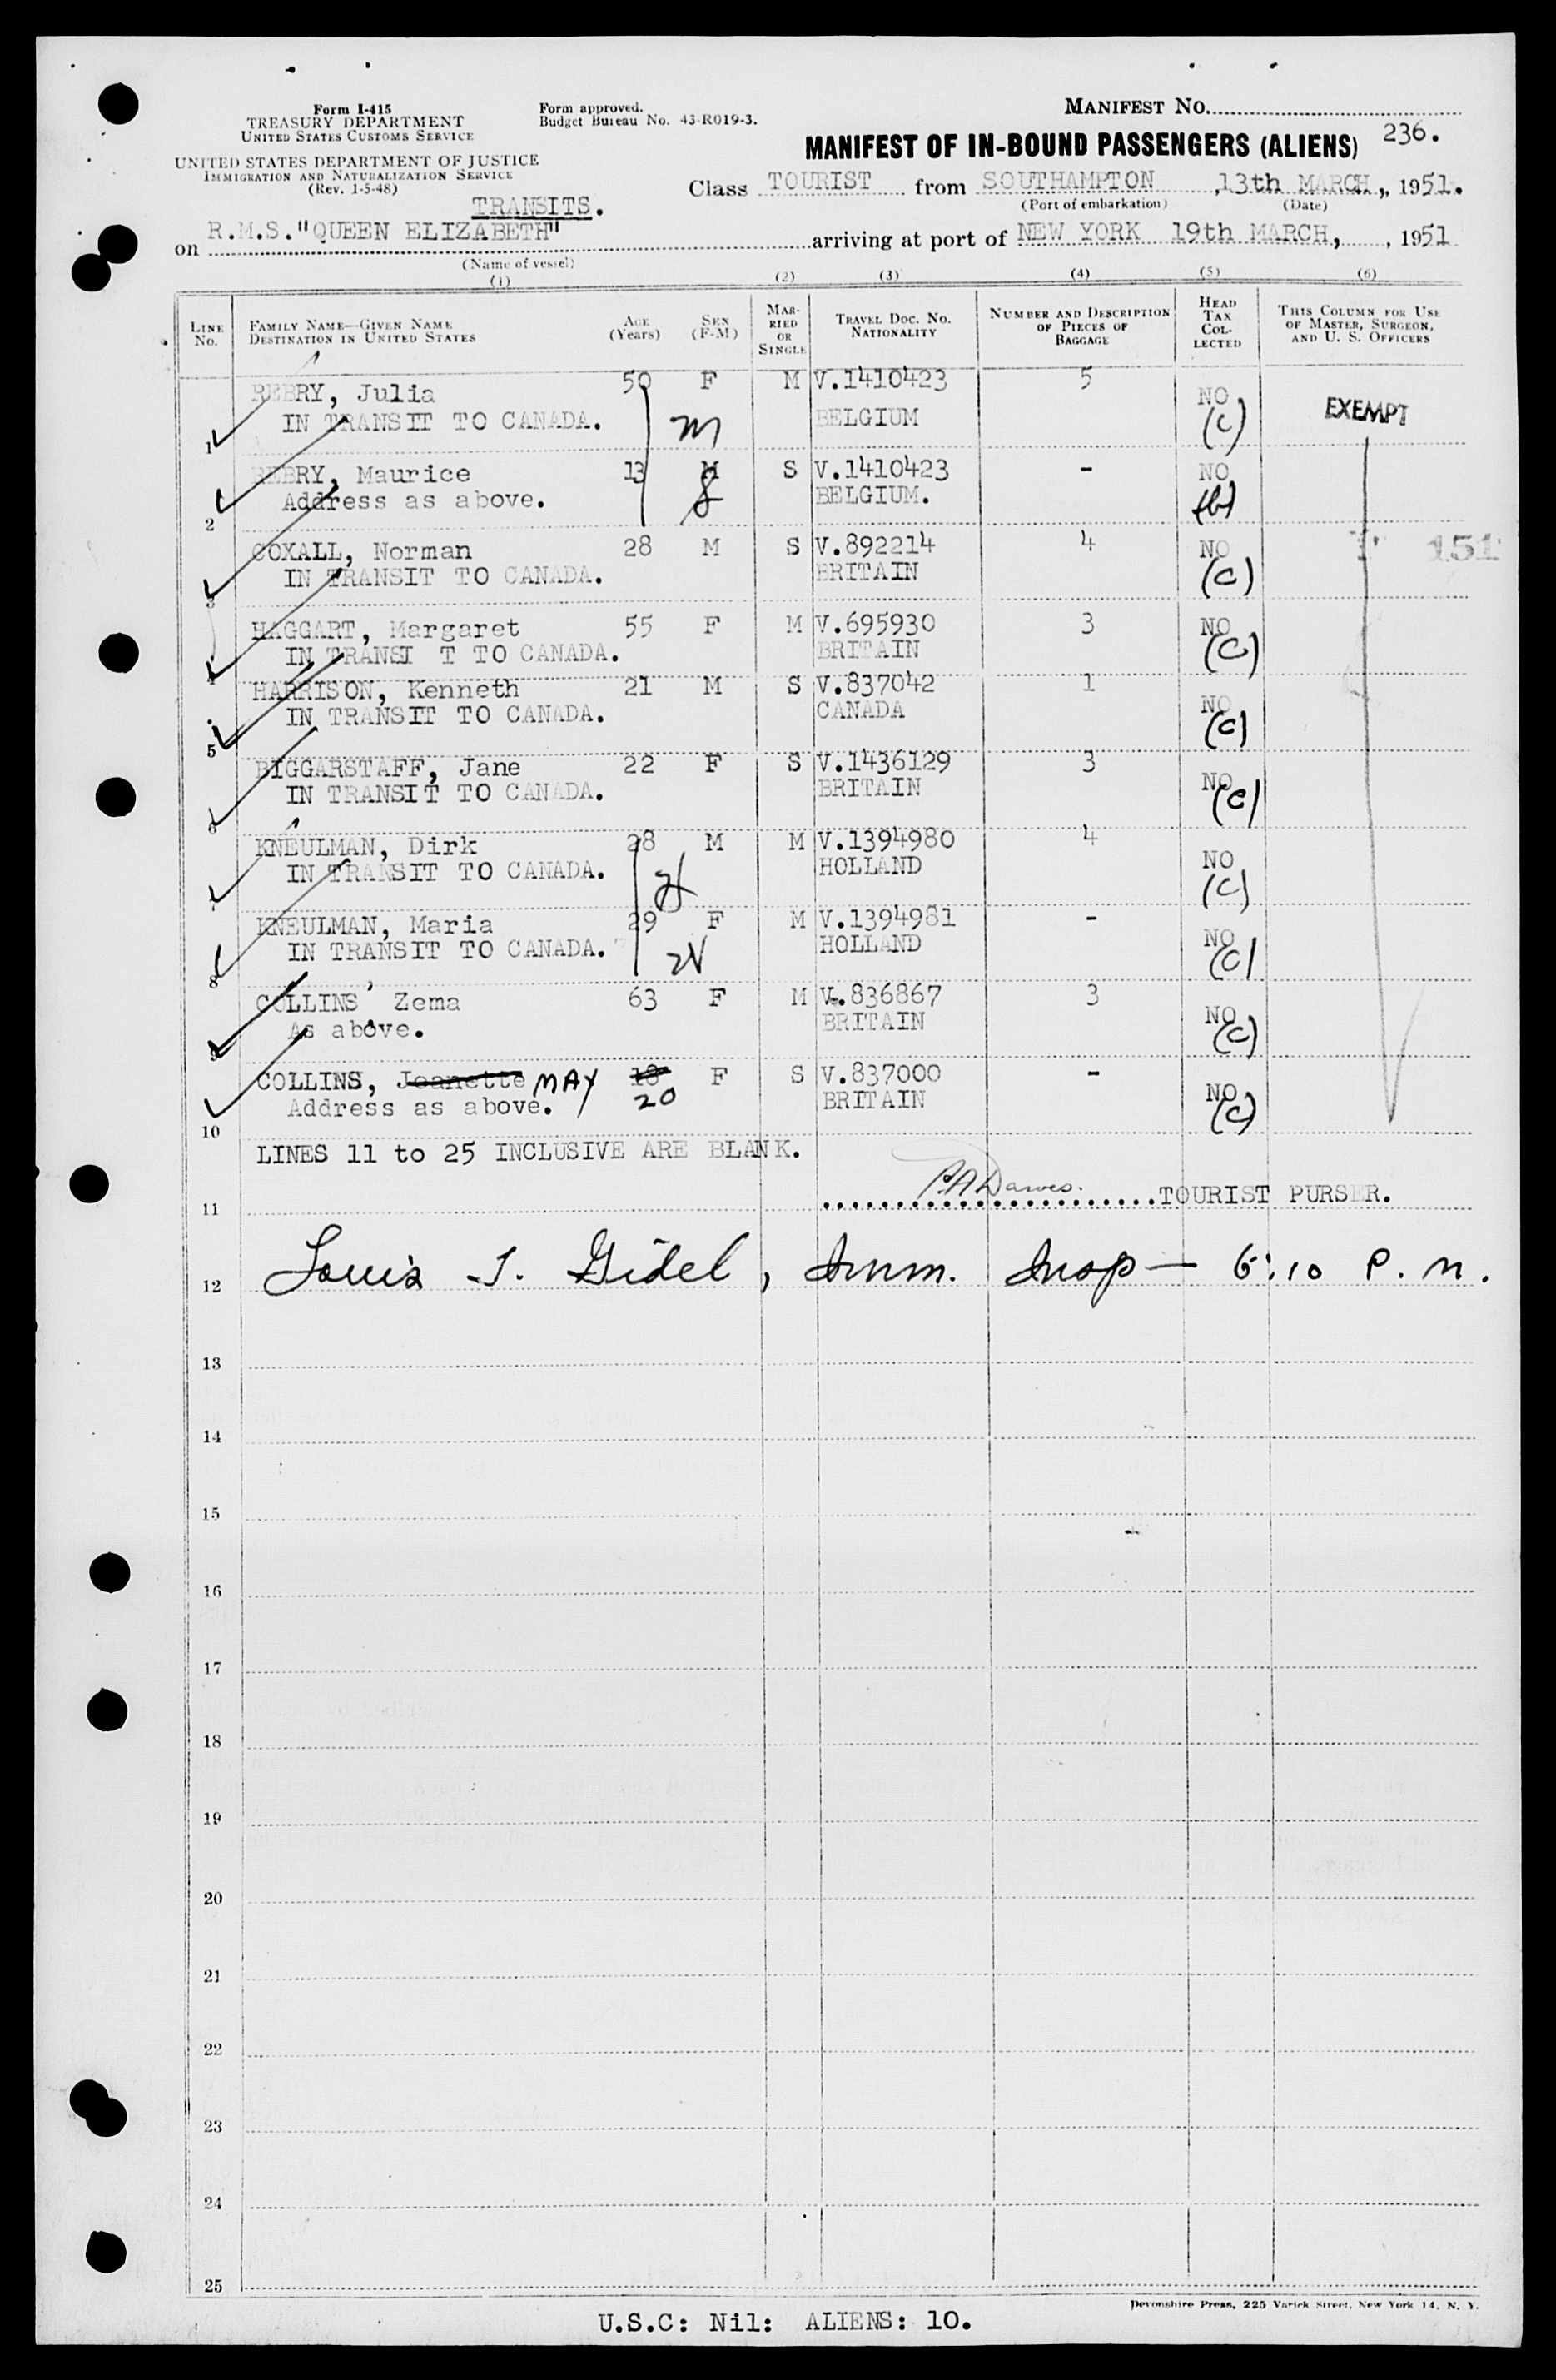 Form I-415
TREASURY DEPARTMENT
UNITED STATES CUSTOMS SERVICE
UNITED STATES DEPARTMENT OF JUSTICE
IMMIGRATION AND NATURALIZATION SERVICE
(Rev. 1-5-48)
Form approved.
Budget Bureau No. 43-R019-3.
MANIFEST NO.
MANIFEST OF IN-BOUND PASSENGERS (ALIENS) 236.
Class TOURIST from SOUTHAMPTON, 13th MARCH, 1951.
(Port of embarkation) (Date)
TRANSITS.
on R.M.S."QUEEN ELIZABETH" arriving at port of NEW YORK 19th MARCH, , 1951
(Name of vessel)
(1) (2) (3) (4) (5) (6)
LINE NO. FAMILY NAME—GIVEN NAME DESTINATION IN UNITED STATES AGE (Years) SEX (F-M) MARRIED OR SINGLE TRAVEL DOC. NO. NATIONALITY NUMBER AND DESCRIPTION OF PIECES OF BAGGAGE HEAD TAX COLLECTED THIS COLUMN FOR USE OF MASTER, SURGEON, AND U. S. OFFICERS
REBRY, Julia 50 F M V.1410423 5 NO
IN TRANSIT TO CANADA. m BELGIUM (C) EXEMPT
1
REBRY, Maurice 13 M S V.1410423 - NO
Address as above. BELGIUM. (b)
2
COXALL, Norman 28 M S V.892214 4 NO 151
IN TRANSIT TO CANADA. BRITAIN (C)
3
HAGGART, Margaret 55 F M V.695930 3 NO
IN TRANSI T TO CANADA. BRITAIN (C)
4
HARRISON, Kenneth 21 M S V.837042 1 NO
IN TRANSIT TO CANADA. CANADA (C)
5
BIGGARSTAFF, Jane 22 F S V.1436129 3 NO
IN TRANSIT TO CANADA. BRITAIN (C)
6
KNEULMAN, Dirk 28 M M V.1394980 4 NO
IN TRANSIT TO CANADA. HOLLAND (C)
7
KNEULMAN, Maria 29 F M V.1394981 - NO
IN TRANSIT TO CANADA. HOLLAND (C)
8
COLLINS, Zema 63 F M V.836867 3 NO
As above. BRITAIN (C)
9
COLLINS, Jeanette MAY 18 F S V.837000 - NO
Address as above. 20 BRITAIN (C)
10
LINES 11 to 25 INCLUSIVE ARE BLANK.
P.A Dawes. TOURIST PURSER.
11
12 Louis J. Gidel, Imm. Insp— 6:10 P.M.
13
14
15
16
17
18
19
20
21
22
23
24
25
Devonshire Press, 225 Varick Street, New York 14, N. Y.
U.S.C: Nil: ALIENS: 10.